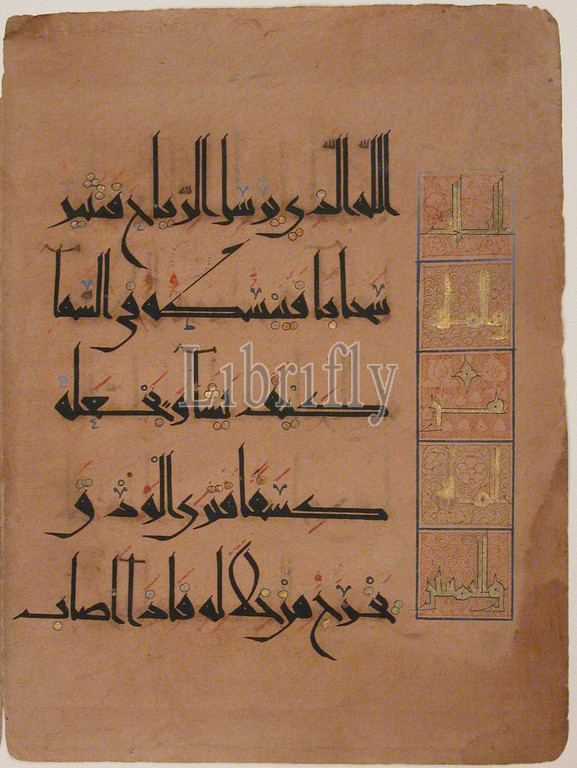 الله الذي يرسل الرياح فتثير
سحابا فيبسطه في السما
كيف يشا ويجعله
كسفا فترى الودق
يخرج من خلله فاذا اصاب
Librifly